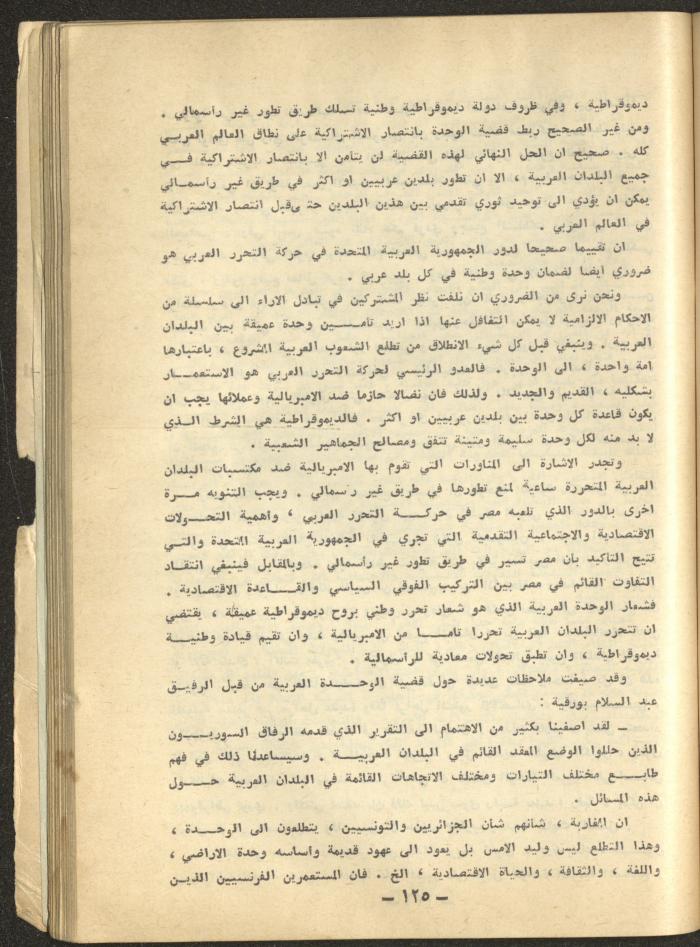 ديموقراطية ، وفي ظروف دولة ديموقراطية وطنية تسلك طريق تطور غير رأسمالي .
ومن غير الصحيح ربط قضية الوحدة بانتصار الاشتراكية على نطاق العالم العربي
كله . صحيح ان الحل النهائي لهذه القضية لن يتأمن الا بانتصار الاشتراكية فــي
جميع البلدان العربية ، الا ان تطور بلدين عربيين او اكثر في طريق غير رأســمالي
يمكن ان يؤدي الى توحيد ثوري تقدمي بين هذين البلدين حتـ ىقبل انتصار الاشتراكية
في العالم العربي .
ان تقييما صحيحا لدور الجمهورية العربية المتحدة في حركة التحرر العربي هو
ضروري ايضا لضمان وحدة وطنية في كل بلد عربي .
ونحن نرى من الضروري ان نلفت نظر المشتركين في تبادل الاراء الى سلسلة من
الاحكام الالزامية لا يمكن التغافل عنها اذا اريد تأمــــين وحدة عميقة بين البلدان
العربية . وينبغي قبل كل شيء الانطلاق من تطلع الشعوب العربية المشروع ، باعتبارها
امة واحدة ، الى الوحدة . فالعدو الرئيسي لحركة التحرر العربي هو الاستعمــار
بشكليه ، القديم والجديد . ولذلك فان نضالا حازما ضد الامبريالية وعملائها يجب ان
يكون قاعدة كل وحدة بين بلدين عربيين او اكثر . فالديموقراطية هي الشرط الــذي
لا بد منه لكل وحدة سليمة ومتينة تتفق ومصالح الجماهير الشعبية .
وتجدر الاشارة الى المناورات التي تقوم بها الامبريالية ضد مكتسبات البلدان
العربية المتحررة ساعية لمنع تطورها في طريق غير رأسمالي . ويجب التنويه مـــرة
اخرى بالدور الذي تلعبه مصر في حركـــة التحرر العربي ، وأهمية التحــولات
الاقتصادية والاجتماعية التقدمية التي تجري في الجمهورية العربية المتحدة والتــي
تتيح التأكيد بان مصر تسير في طريق تطور غير رأسمالي . وبالمقابل فينبغي انتقــاد
التفاوت القائم في مصر بين التركيب الفوقي السياسي والقــــاعدة الاقتصادية .
فشعار الوحدة العربية الذي هو شعار تحرر وطني بروح ديموقراطية عميقة ، يقتضي
ان تتحرر البلدان العربية تحررا تامـــا من الامبريالية ، وان تقيم قيادة وطنيــة
ديموقراطية ، وان تطبق تحولات معادية للرأسمالية .
وقد صيغت ملاحظات عديدة حول قضية الوحـــدة العربية من قبل الرفيــق
عبد السلام بورقية :
ــ لقد اصغينا بكثير من الاهتمام الى التقرير الذي قدمه الرفاق السوريـــون
الذين حللوا الوضع المعقد القائم في البلدان العربيـــة . وسيساعدنا ذلك في فهم
طابـــع مختلف التيارات ومختلف الاتجاهات القائمة في البلدان العربية حـــول
هذه المسائل .
ان المغاربة ، شأنهم شأن الجزائريين والتونسيين ، يتطلعون الى الوحــدة ،
وهذا التطلع ليس وليد الامس بل يعود الى عهود قديمة وأساسه وحدة الاراضي ،
واللغة ، والثقافة ، والحياة الاقتصادية ، الخ . فان المستعمرين الفرنسيين الذيــن
ــ ١٢٥ ــ